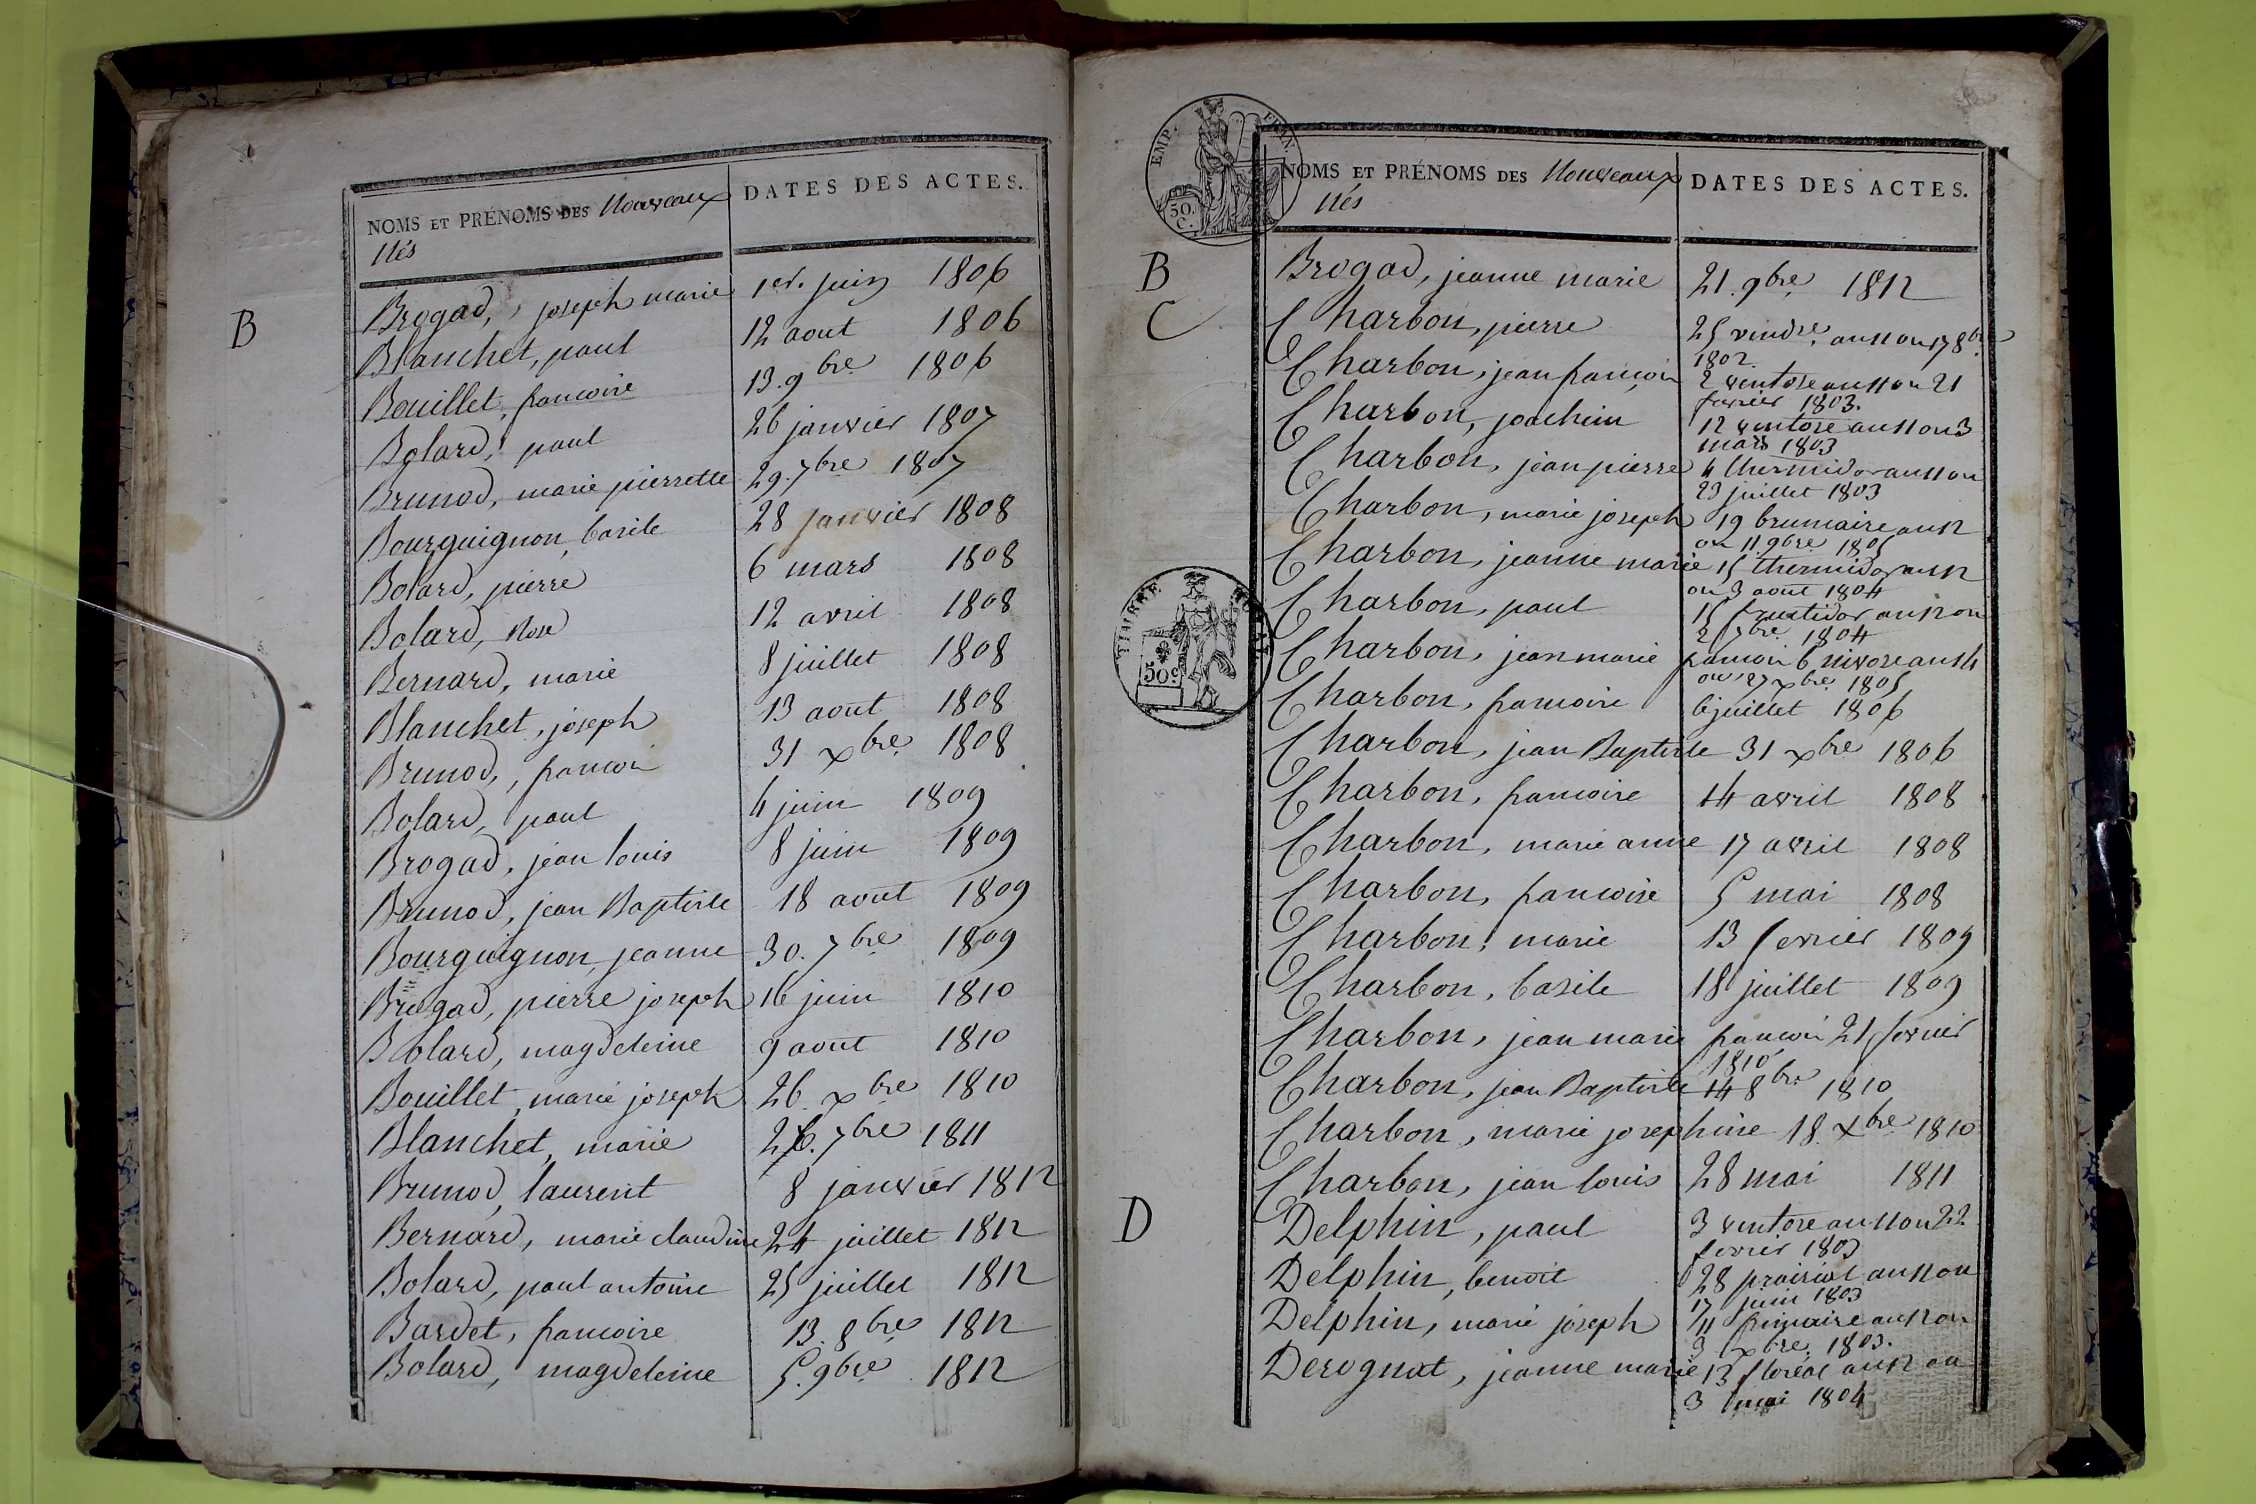 NOMS ET PRÉNOMS DES Nouveaux
Nés
DATES DES ACTES.
B
Brogad, joseph marie 1er. juin 1806
Blanchet, paul 12 aout 1806
Bouillet, francoise 13. 9bre 1806
Bolard, paul 26 janvier 1807
Brunod, marie pierrette 29. 7bre 1807
Bourguignon, basile 28 janvier 1808
Bolard, pierre 6 mars 1808
Bolard, Rose 12 avril 1808
Bernard, marie 8 juillet 1808
Blanchet, joseph 13 aout 1808
Brunod, francois 31 xbre 1808
Bolard, paul 4 juin 1809
Brogad, jean louis 8 juin 1809
Brunod, jean Baptiste 18 aout 1809
Bourguignon, jeanne 30. 7bre 1809
Brogad, pierre joseph 16 juin 1810
Bolard, magdeleine 9 aout 1810
Bouillet, marie joseph 26 xbre 1810
Blanchet, marie 26. 7bre 1811
Brunod, laurent 8 janvier 1812
Bernard, marie claudine 24 juillet 1812
Bolard, paul antoine 25 juillet 1812
Bardet, francoise 13. 8bre 1812
Bolard, magdeleine 5. 9bre 1812
EMP. FRAN.
50.
C.
NOMS ET PRÉNOMS DES Nouveaux
Nés
DATES DES ACTES.
B
Brogad, jeanne marie 21. 9bre 1812
C
Charbon, pierre 25 vendre. an 11 ou 17 8bre
1802
Charbon, jean francois 2 ventose an 11 ou 21
fevrier 1803.
Charbon, joachim 12 ventose an 11 ou 3
mars 1803
Charbon, jean pierre 4 thermidor an 11 ou
23 juillet 1803
Charbon, marie joseph 19 brumaire an 12
ou 11. 9bre 1803
Charbon, jeanne marie 15 thermidor an 12
ou 3 aout 1804
Charbon, paul 15 fructidor an 12 ou
2 7bre 1804
Charbon, jean marie francois 6 nivose an 14
ou 27 xbre 1805
Charbon, francoise 6 juillet 1806
Charbon, jean Baptiste 31 xbre 1806
Charbon, francoise 14 avril 1808
Charbon, marie anne 17 avril 1808
Charbon, francoise 5 mai 1808
Charbon, marie 13 fevrier 1809
Charbon, basile 18 juillet 1809
Charbon, jean marie francois 21 fevrier
1810
Charbon, jean Baptiste 14 8bre 1810
Charbon, marie josephine 18 xbre 1810
Charbon, jean louis 28 mai 1811
TIMBRE
50c
D
Delphin, paul 3 ventose an 11 ou 22
fevrier 1803
Delphin, benoit 28 prairial an 11 ou
17 juin 1803
Delphin, marie joseph 11 frimaire an 12 ou
3 xbre 1803.
Derognat, jeanne marie 13 floréal an 12 ou
3 mai 1804